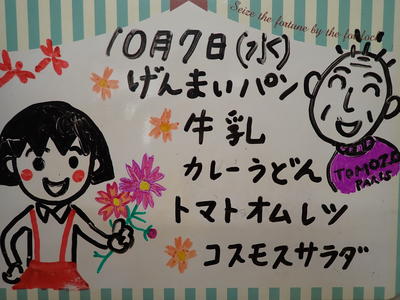 Seize the fortune by the forelock
10月7日(水)
げんまいパン
牛乳
カレーうどん
トマトオムレツ
コスモスサラダ
TOMOZO
PARIS